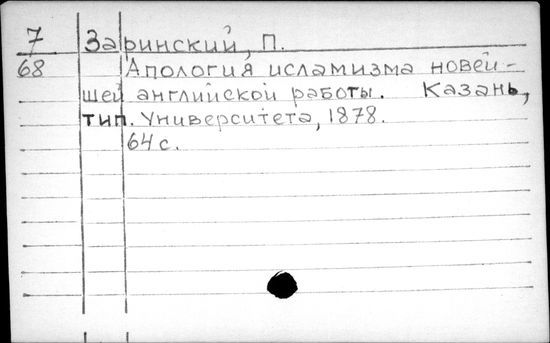 7 Заринский, П.
68 Апология исламизма новей-
шей английской работы. Казань,
тип. Университета, 1878.
64 с.